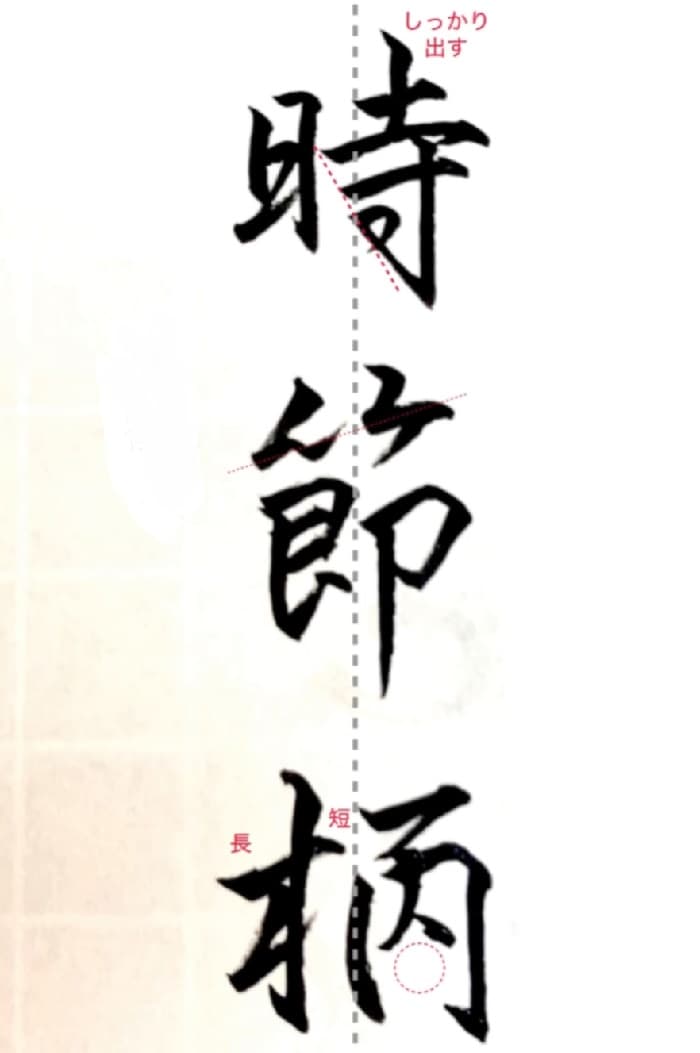 時節柄
しっかり
出す
長
短